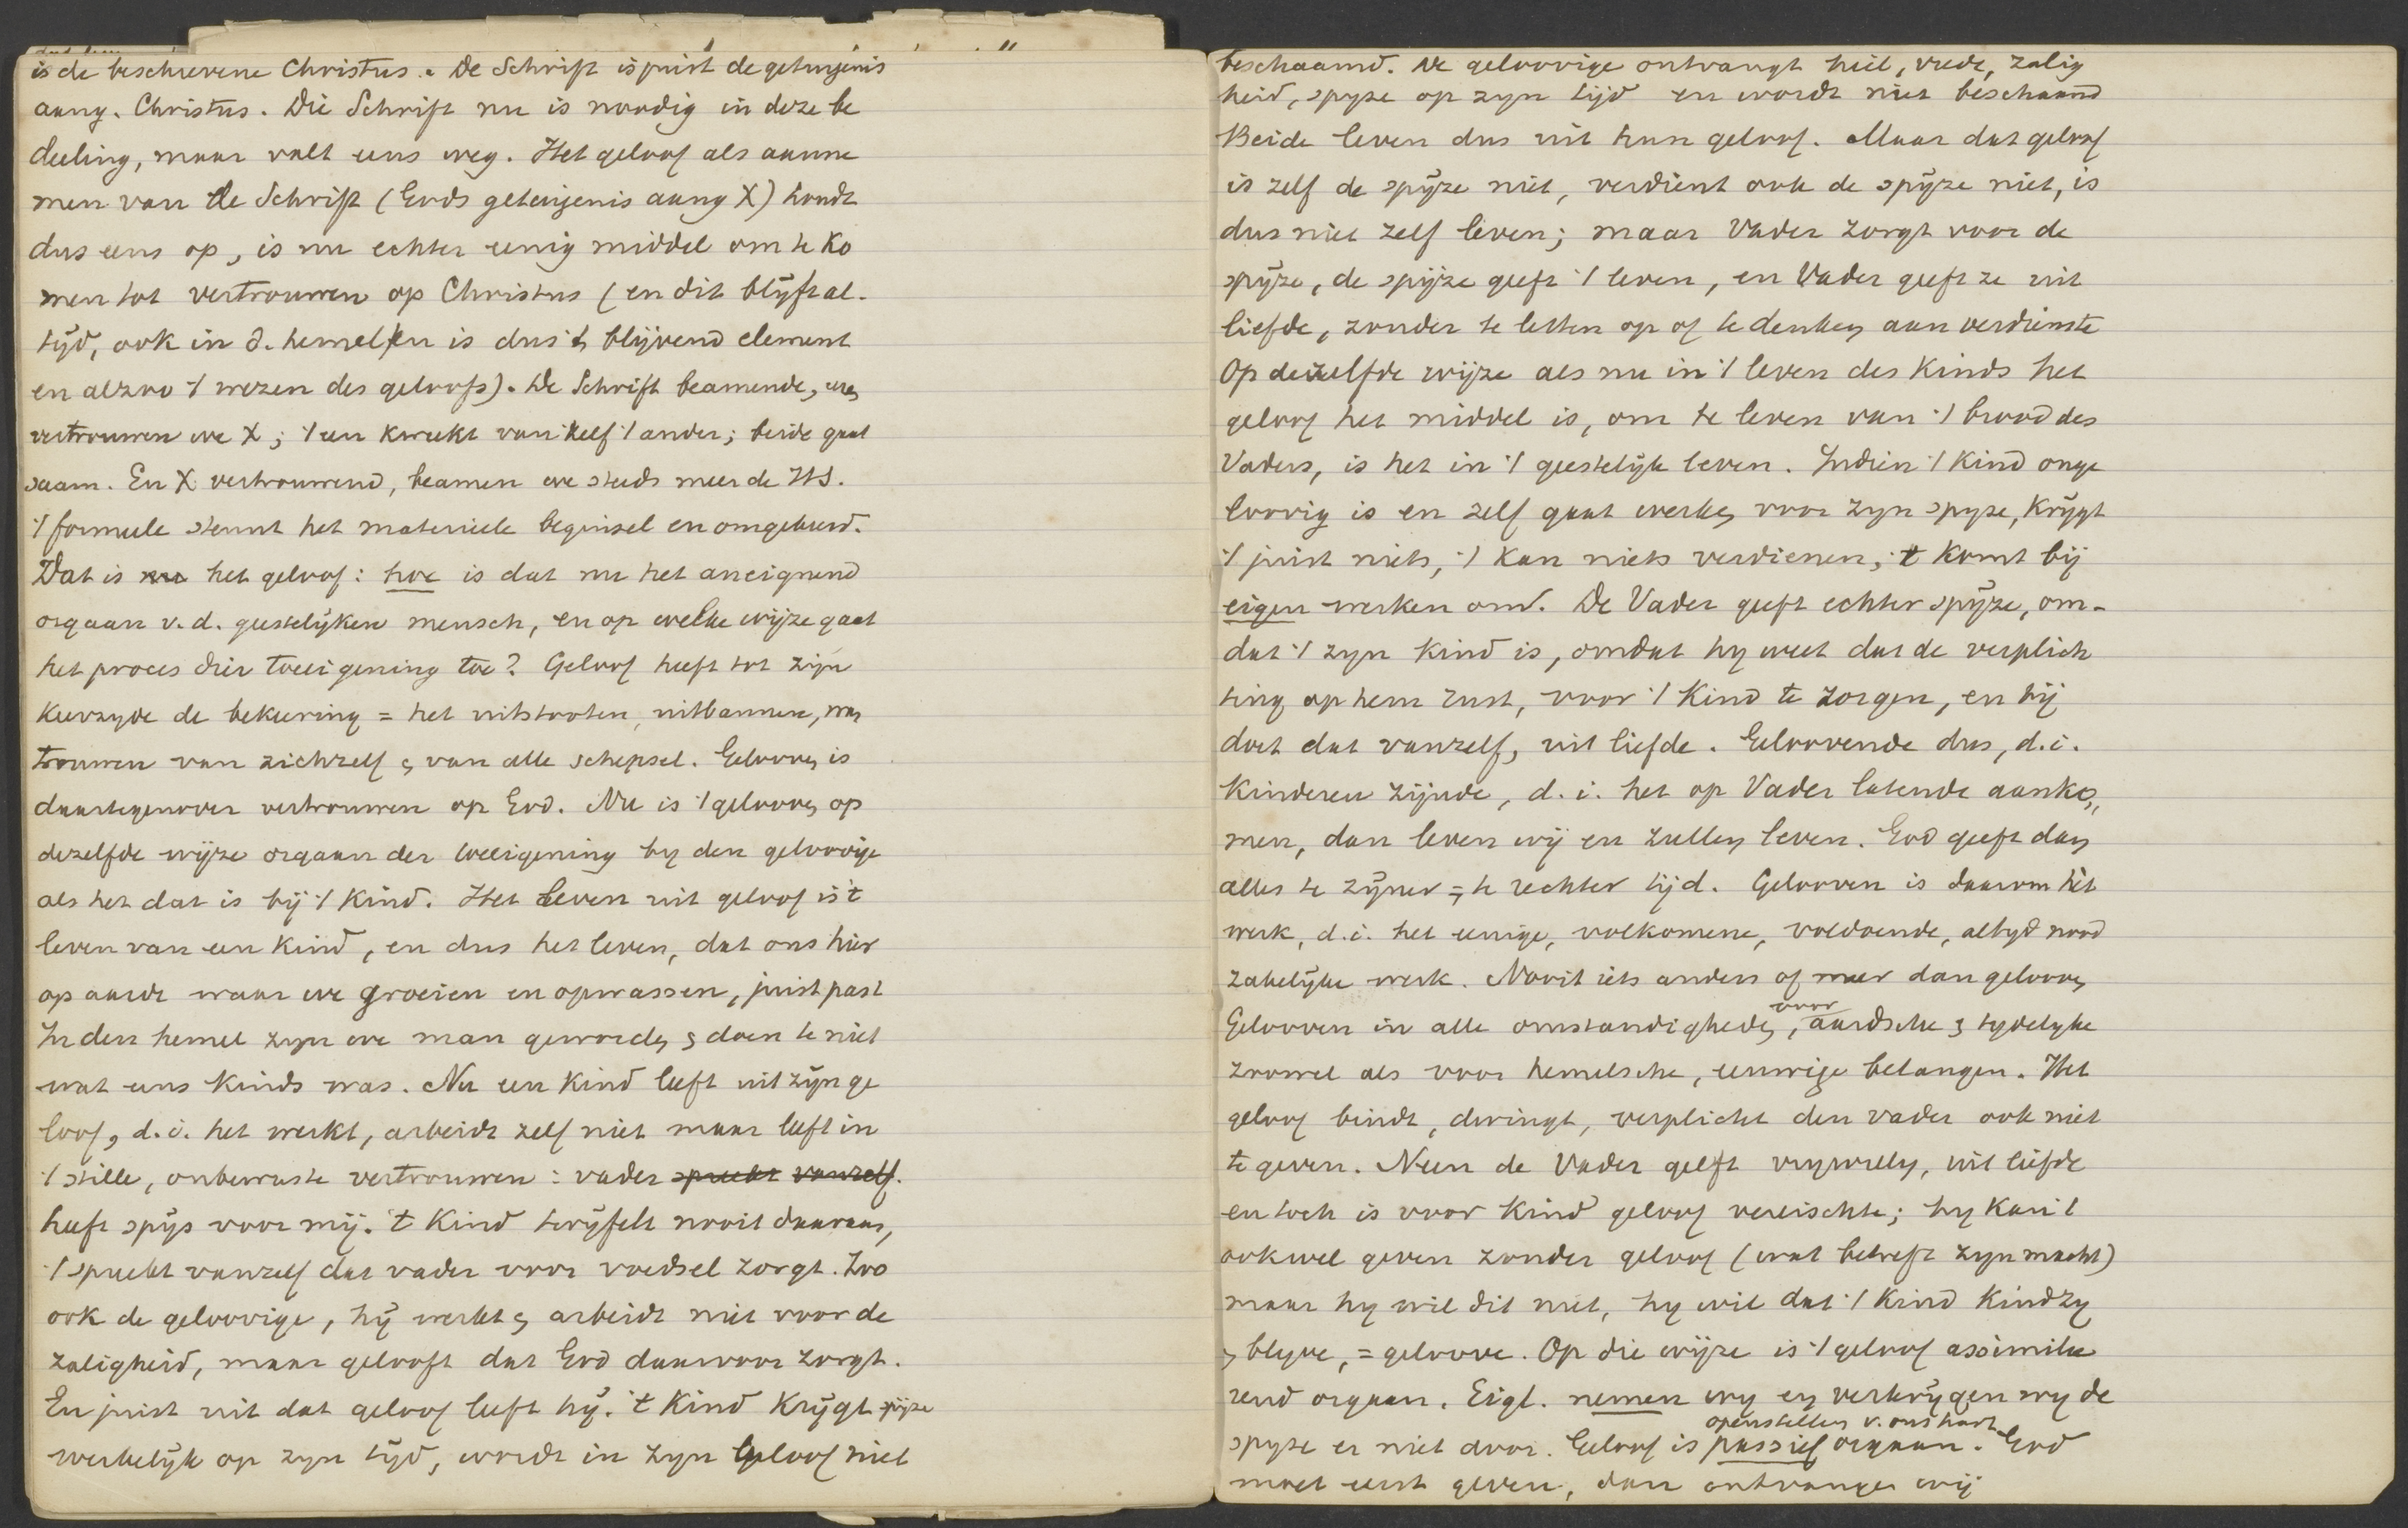 is de beschrevene Christus. De Schrift is juist de getuijenis
aang. Christus. Die Schrift nu is noodig in deze be
deeling, maar valt eens weg. Het geloof als aanne
men van de Schrift (Gods getuijenis aang X) houdt
dus eens op, is nu echter eenig middel om te ko
men tot vertrouwen op Christus (en dit blijft al-
tijd, ook in d. hemel en is dus 't blijvend element
en alzoo 't wezen des geloofs). De Schrift beamende,
vertrouwen we X; 't een kweekt vanzelf 't ander; beide gaat
saam. En X vertrouwend, beamen we steeds meer de HS.
't formeele steunt het materieele beginsel en omgekeerd.
Dat is nu het geloof: hoe is dat nu het aneignend
orgaan v.d. geestelijken mensch, en op welke wijze gaat
het proces dier toeeigening toe? Geloof heeft tot zijn
keerzyde de bekeering = het uitstooten, uitbannen, wan
trouwen van zichzelf en van alle schepsel. Gelooven is
daartegenover vertrouwen op God. Nu is 't gelooven op
dezelfde wijze orgaan der toeeigening by den geloovige
als het dat is bij 't Kind. Het leven uit geloof is 't
leven van een kind, en dus het leven, dat ons hier
op aarde waar we groeien en opwassen, juist past
In den hemel zyn we man geworden en doen te niet
wat eens kinds was. Nu een Kind leeft uit zijn ge
loof, d.i. het werkt, arbeidt zelf niet maar leeft in
't stille, onbewuste vertrouwen: vader spreekt vanzelf.
heeft spijs voor mij. 't Kind twijfelt nooit daaraan,
't spreekt vanzelf dat vader voor voedsel zorgt. Zoo
ook de geloovige, hij werkt en arbeidt niet voor de
zaligheid, maar gelooft dat God daarvoor zorgt.
En juist uit dat geloof leeft hij. 't Kind Krijgt spijze
werkelijk op zyn tijd, wordt in zyn geloof niet
beschaamd. De geloovige ontvangt heil, vrede, zalig
heid, spyze op zyn tijd en wordt niet beschaamd
Beide leven dus uit hun geloof. Maar dat geloof
is zelf de spijze niet, verdient ook de spijze niet, is
dus niet zelf leven; maar Vader zorgt voor de
spijze, de spijze geeft 't leven, en Vader geeft ze uit
liefde, zonder te letten op of te denken aan verdienste
Op dezelfde wijze als nu in 't leven des Kinds het
geloof het middel is, om te leven van 't brood des
Vaders, is het in 't geestelijk leven. Indien 't Kind onge
loovig is en zelf gaat werken voor zyn spyze, krijgt
't juist niets, 't kan niets verdienen, 't komt bij
eigen werken om. De Vader geeft echter spijze, om-
dat 't zyn Kind is, omdat hy weet dat de verplich
ting op hem rust, voor 't Kind te zorgen, en hij
doet dat vanzelf, uit liefde. Geloovende dus, d.i.
Kinderen zijnde, d.i. het op Vader latende aanko,,
men, dan leven wij en zullen leven. God geeft dan
alles te zijner = te rechter tijd. Gelooven is daarom hèt
werk, d.i. het eenige, volkomene, voldoende, altyd nood
zakelijke werk. Nooit iets anders of meer dan gelooven
Gelooven in alle omstandigheden, voor aardsche en tydelyke
zoowel als voor hemelsche, eeuwige belangen. Het
geloof bindt, dwingt, verplicht den vader ook niet
te geven. Neen de Vader geeft vrywillig, uit liefde
en toch is voor Kind geloof vereischte; hy kan 't
ook wel geven zonder geloof (wat betreft zyn macht)
maar hy wil dit niet, hy wil dat 't Kind Kind zy
en blyve, = geloove. Op die wijze is 't geloof assimilee
rend orgaan. Eigl. nemen wy en verkrijgen wy de
spyze er niet door. Geloof is passief orgaan. openstellen v. ons hart God
moet eerst geven, dan ontvangen wij